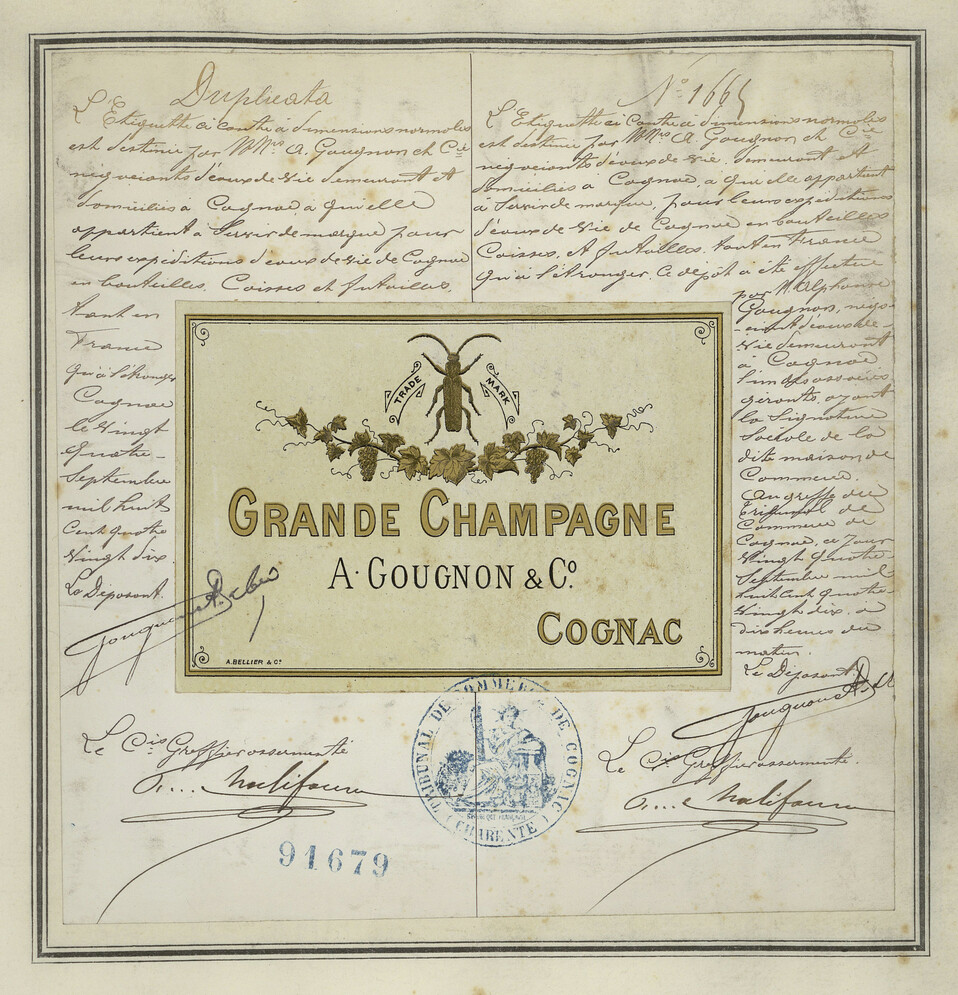 Duplicata
L'Etiquette ci contre à dimensions normales
est destinée par MMrs A. Gougnon et Cie
négociants d'eaux de vie demeurant et
domiciliés à Cognac à qui elle
appartient à Servir de marque pour
leurs expéditions d'eaux de vie de Cognac
en bouteilles, Caisses et futailles,
tant en
France
qu'à l'étranger
Cognac
le vingt
Quatre-
Septembre
mil huit
Cent quatre
Vingt dix.
Le Déposant.
No 1665
L'Etiquette ci Contre à dimensions normales
est destinée par MMrs A. Gougnon et Cie
négociants d'eaux de vie, demeurant et
domiciliés à Cognac, à qui elle appartient
à Servir de marque, pour leurs expéditions
d'eaux de Vie de Cognac en bouteilles
Caisses, et futailles, tant en France
qu'à l'étranger. Ce dépôt a été effectué
par M. Alphonse
Gougnon, négo-
-ciant d'eaux de-
vie demeurant
à Cognac
l'un des associés
gérants ayant
la Signature
Sociale de la
dite maison de
Commerce.
Au greffe du
Tribunal de
Commerce de
Cognac, ce jour
Vingt quatre
Septembre mil
huit cent quatre-
Vingt dix, à
dix heures du
matin.
Le Déposant
TRADE MARK
GRANDE CHAMPAGNE
A. GOUGNON & Co.
COGNAC
A. BELLIER & Co.
Le Cis Greffier assermenté
Le Cis Greffier assermenté.
TRIBUNAL DE COMMERCE DE COGNAC
(CHARENTE)
91679